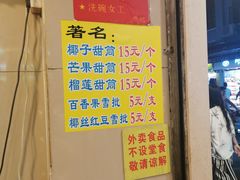 ★洗碗女工
著名：
椰子甜筒15元/个
芒果甜筒15元/个
榴莲甜筒15元/个
百香果雪批 5元/支
椰丝红豆雪批 5元/支
外卖食品
不设堂食
敬请谅解